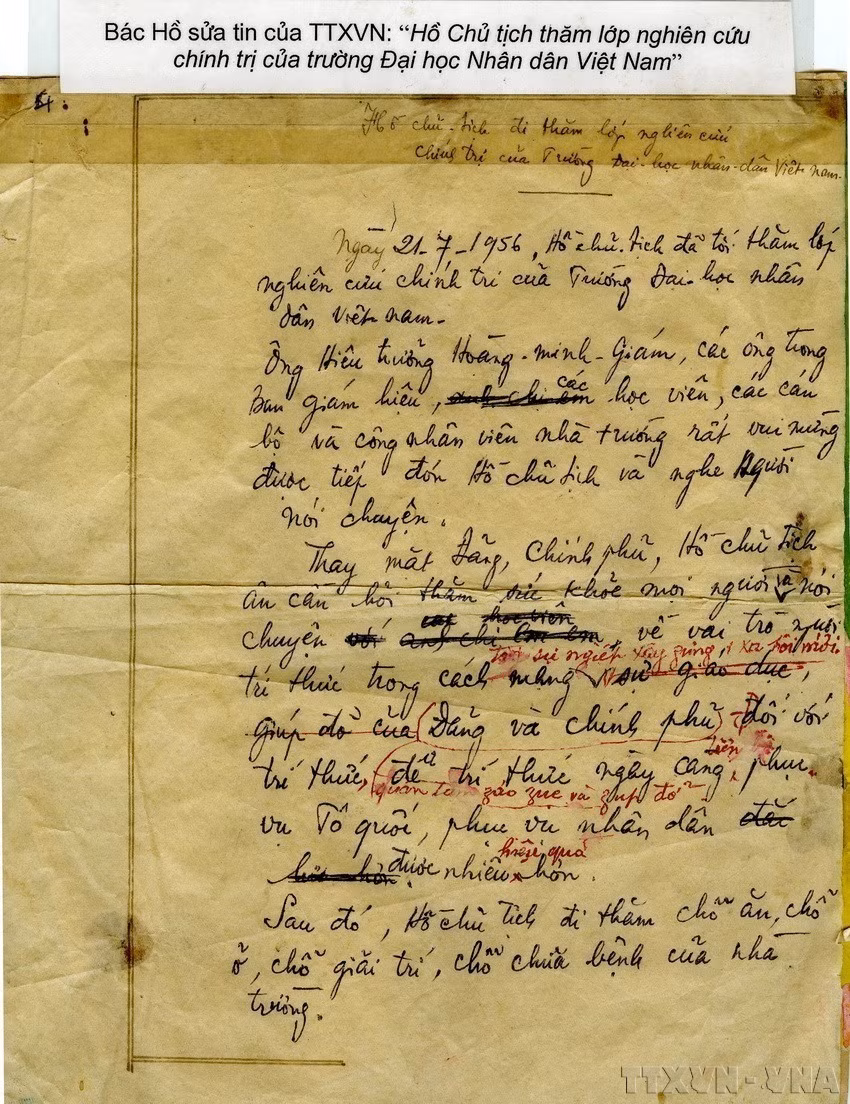 Bác Hồ sửa tin của TTXVN: “Hồ Chủ tịch thăm lớp nghiên cứu
chính trị của trường Đại học Nhân dân Việt Nam”
Hồ chủ-tịch đi thăm lớp nghiên cứu
chính trị của Trường Đại-học nhân-dân Việt-nam.
Ngày 21-7-1956, Hồ chủ-tịch đã tới thăm lớp
nghiên cứu chính trị của Trường Đại-học nhân
dân Việt-nam.
Ông Hiệu trưởng Hoàng-minh-Giám, các ông trong
các
ban giám hiệu, anh chị em học viên, các cán
bộ và công nhân viên nhà trường rất vui mừng
được tiếp đón Hồ chủ tịch và nghe Người
nói chuyện.
Thay mặt Đảng, Chính phủ, Hồ chủ tịch
ân cần hỏi thăm sức khỏe mọi người và nói
các học viên
chuyện với anh chị em, về vai trò người
sự nghiệp xây zựng xã hội mới
trí thức trong cách mạng sự giáo dục,
giúp đỡ của (Đảng và chính phủ) đối với
tiến bộ
trí thức, để trí thức ngày càng phục
záo zục và zúp đỡ
vụ Tổ quốc, phục vụ nhân dân đắc
hiệu quả
lực hơn. được nhiều hơn.
Sau đó, Hồ chủ tịch đi thăm chỗ ăn, chỗ
ở, chỗ giải trí, chỗ chữa bệnh của nhà
trường.
TTXVN-VNA